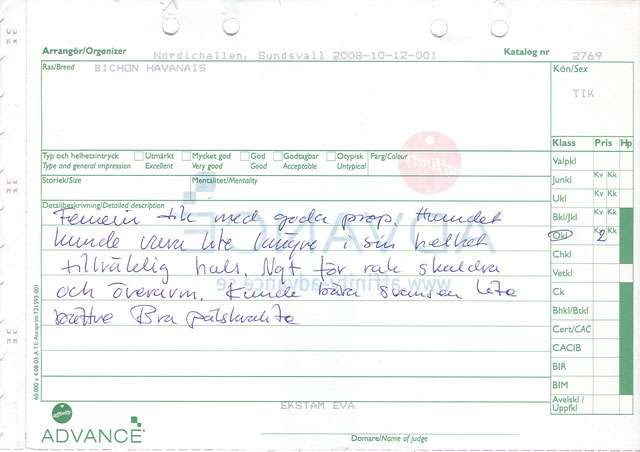 Arrangör/Organizer
Nordichallen, Sundsvall 2008-10-12-001
Katalog nr
2769
Ras/Breed
BICHON HAVANAIS
Kön/Sex
TIK
Typ och helhetsintryck
Type and general impression
Utmärkt
Excellent
Mycket god
Very good
God
Good
Godtagbar
Acceptable
Otypisk
Untypical
Färg/Colour
Storlek/Size
Mentalitet/Mentality
Detaljbeskrivning/Detailed description
Feminin tik med goda prop. Huvudet
kunde vara lite längre i sin helhet
tillräcklig hals. Ngt för rak skuldra
och överarm. Kunde bära svansen lite
bättre Bra pälskvalite
Klass Pris Hp
Valpkl
Junkl Kv Kk
Ukl Kv Kk
Bkl/Jkl Kv Kk
Ökl Kv Kk 2
Chkl
Vetkl
Ck
Bhkl/Btkl
Cert/CAC
CACIB
BIR
BIM
Avelskl / Uppfkl
ADVANCE
www.affinity-advance.se
EKSTAM EVA
Domare/Name of judge
affinity
ADVANCE